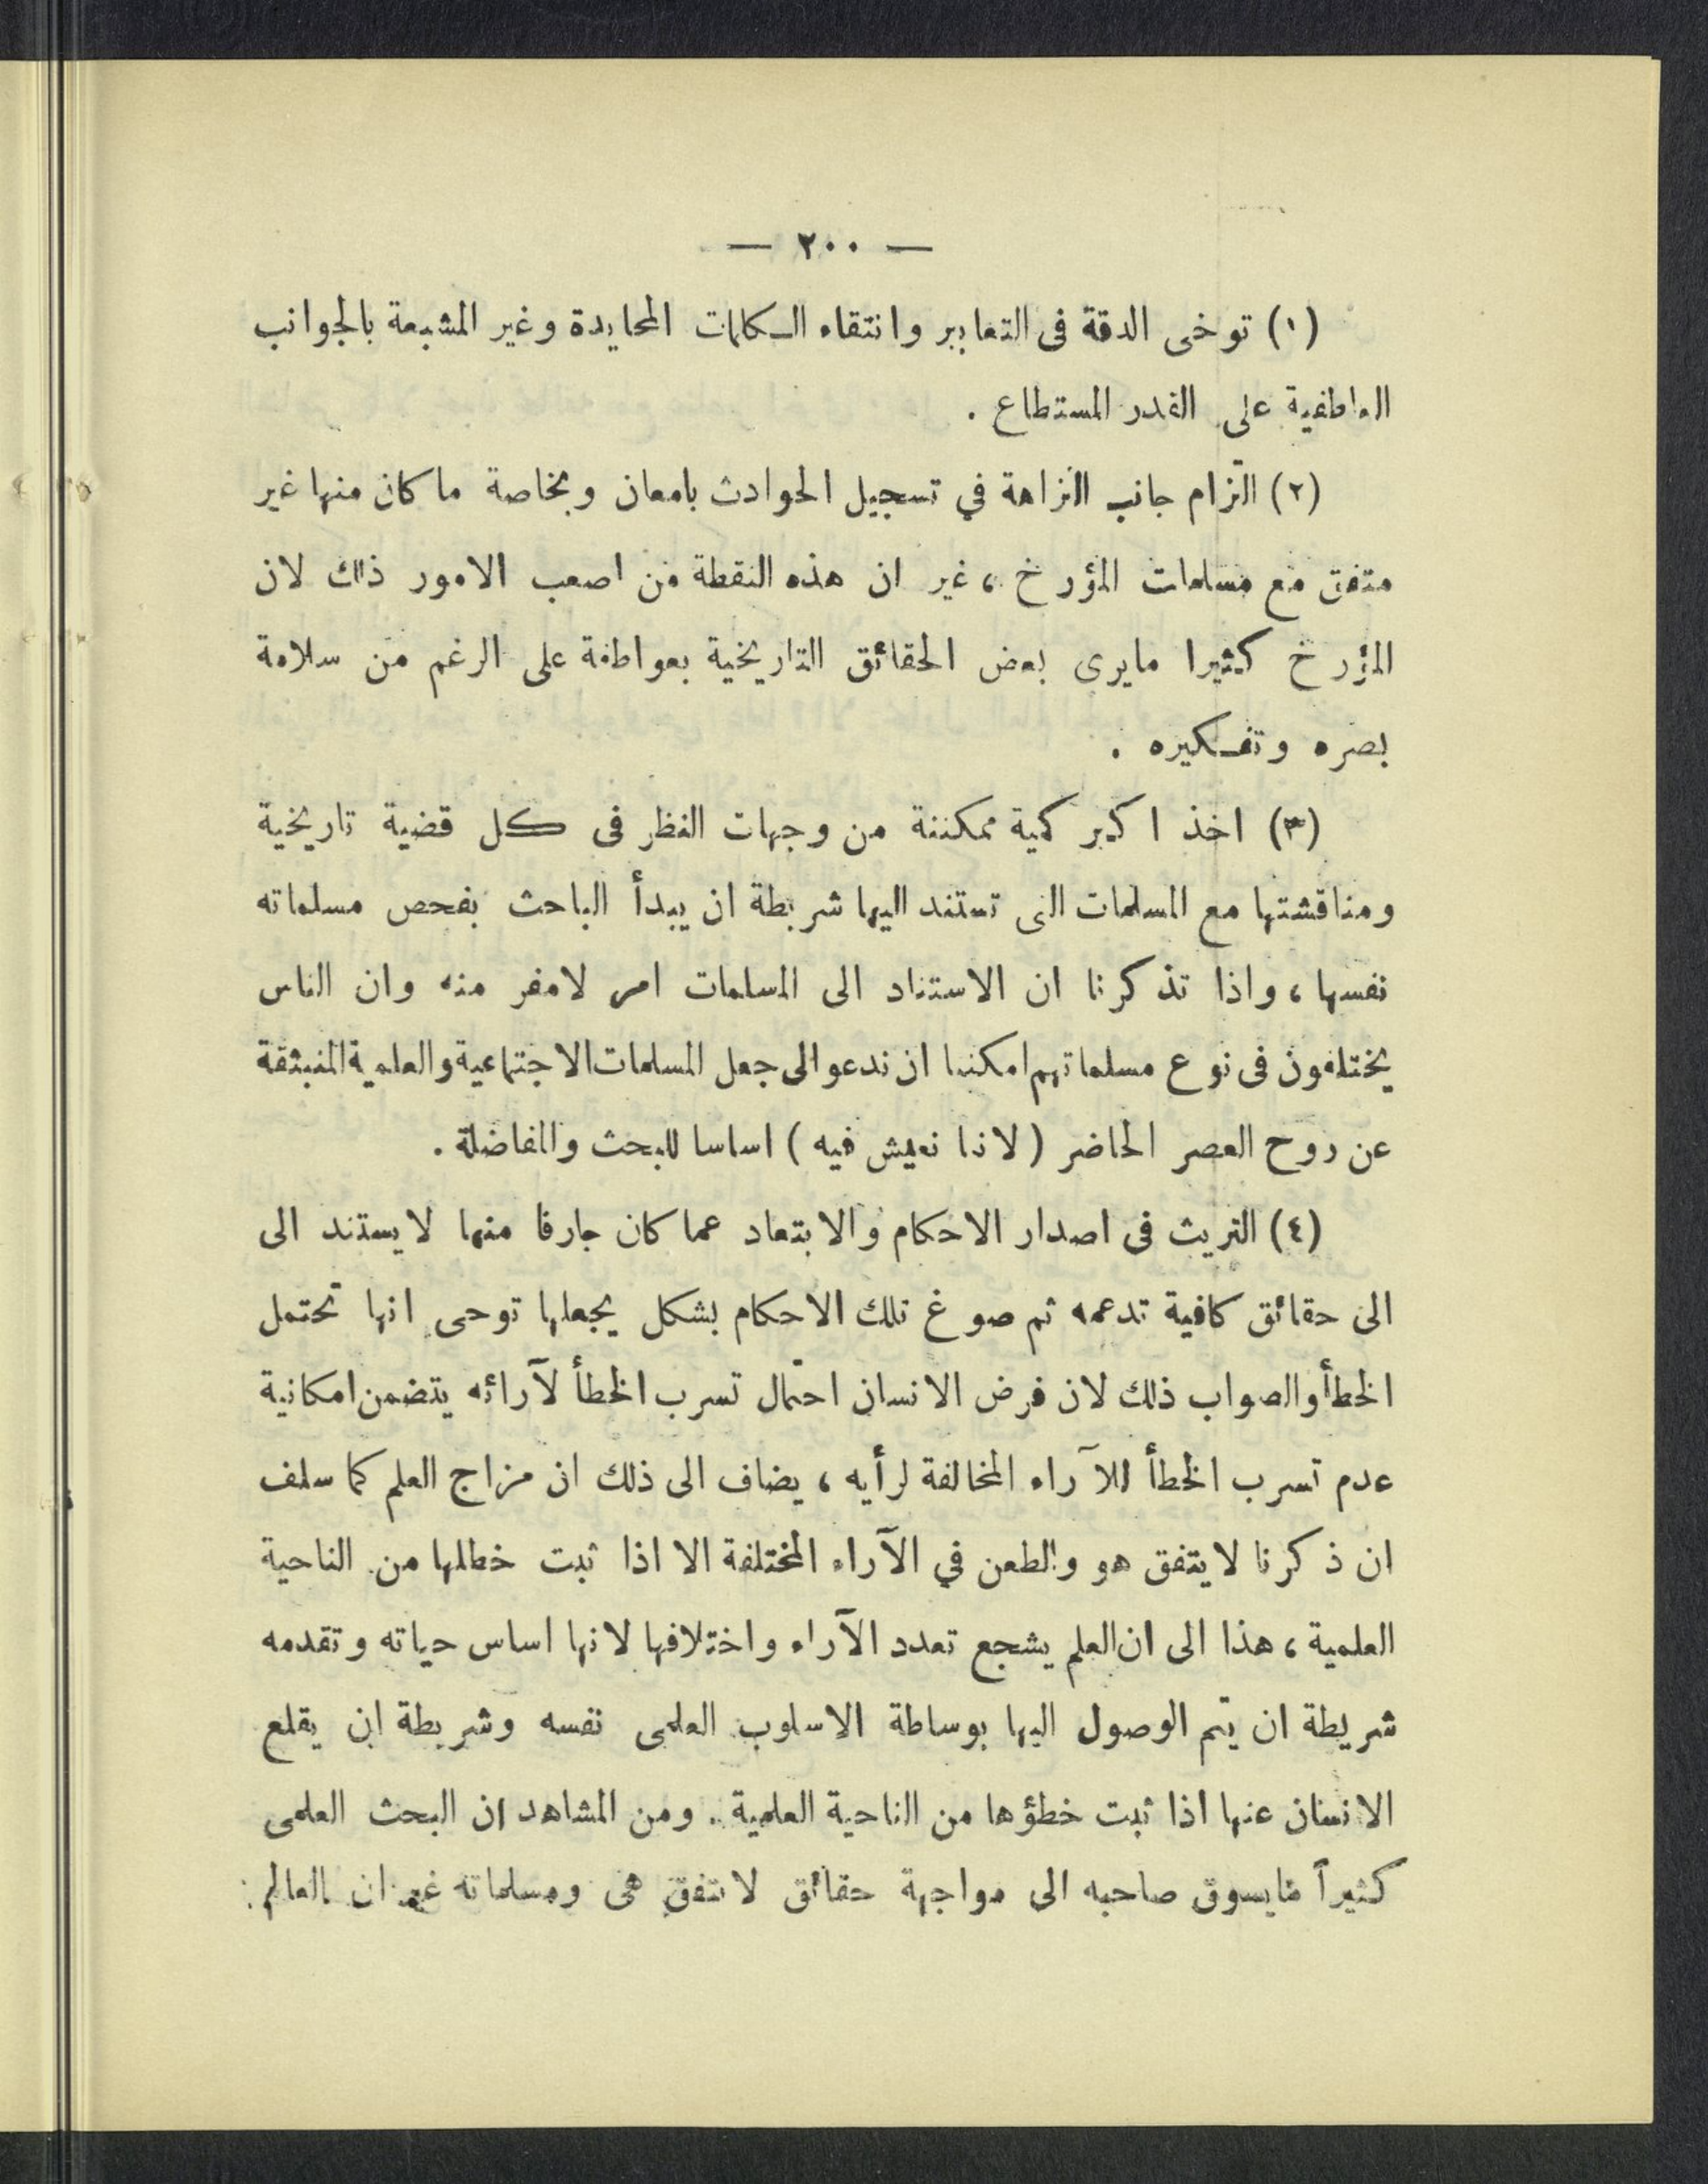 — ٢٠٠ —
(١) توخى الدقة فى التعابير وانتقاء الكلمات المحايدة وغير المشبعة بالجوانب
العاطفية على القدر المستطاع .
(٢) التزام جانب النزاهة في تسجيل الحوادث بامعان وبخاصة ما كان منها غير
متفق مع مسلمات المؤرخ ، غير ان هذه النقطة من اصعب الامور ذلك لان
المؤرخ كثيرا مايرى بعض الحقائق التاريخية بعواطفة على الرغم من سلامة
بصره وتفكيره .
(٣) اخذ اكبر كمية ممكننة من وجهات النظر فى كل قضية تاريخية
ومناقشتها مع المسلمات التى تستند اليها شريطة ان يبدأ الباحث بفحص مسلماته
نفسها ، واذا تذكرنا ان الاستناد الى المسلمات امر لامفر منه وان الناس
يختلفون فى نوع مسلماتهم امكننا ان ندعو الى جعل المسلمات الاجتماعية والعلمية المنبثقة
عن روح العصر الحاضر ( لاننا نعيش فيه ) اساسا للبحث والمفاضلة .
(٤) التريث فى اصدار الاحكام والابتعاد عما كان جارفا منها لايستند الى
الى حقائق كافية تدعمه ثم صوغ تلك الاحكام بشكل يجعلها توحى انها تحتمل
الخطأ والصواب ذلك لان فرض الانسان احتمال تسرب الخطأ لآرائه يتضمن امكانية
عدم تسرب الخطأ للآراء المخالفة لرأيه ، يضاف الى ذلك ان مزاج العلم كما سلف
ان ذكرنا لايتفق هو والطعن في الآراء المختلفة الا اذا ثبت خطلها من الناحية
العلمية ، هذا الى ان العلم يشجع تعدد الآراء واختلافها لانها اساس حياته وتقدمه
شريطة ان يتم الوصول اليها بوساطة الاسلوب العلمى نفسه وشريطة ان يقلع
الانسان عنها اذا ثبت خطؤها من الناحية العلمية . ومن المشاهد ان البحث العلمى
كثيراً مايسوق صاحبه الى مواجهة حقائق لاتتفق هى ومسلماته غير ان العالم